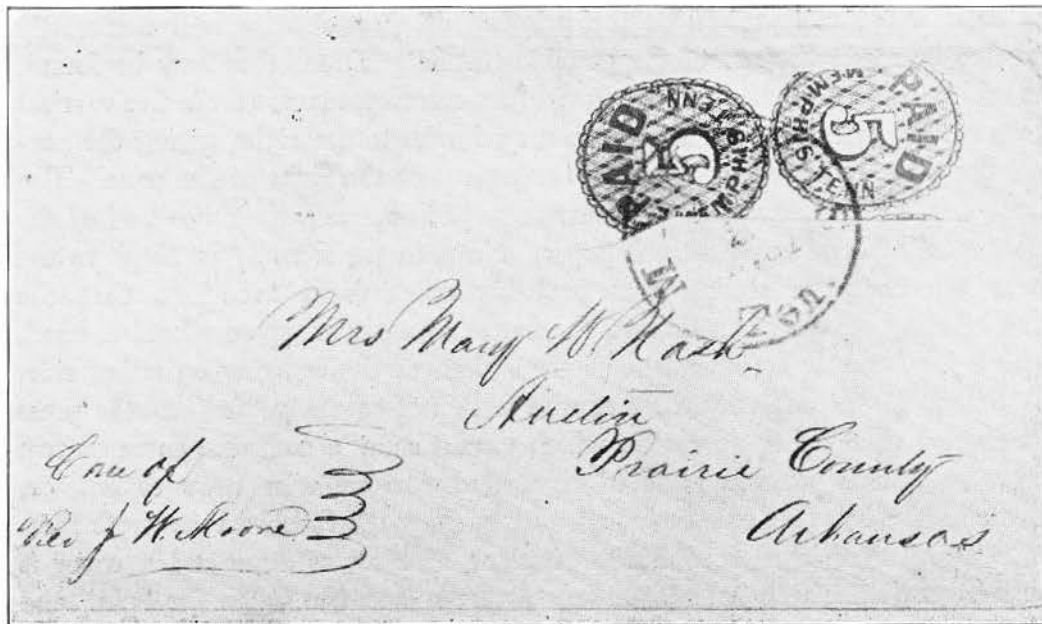 PAID
5
MEMPHIS, TENN.
PAID
5
MEMPHIS, TENN
Mrs Mary W. Nash
Austin
Prairie County
Arkansas
Care of
Rev J W. Moore